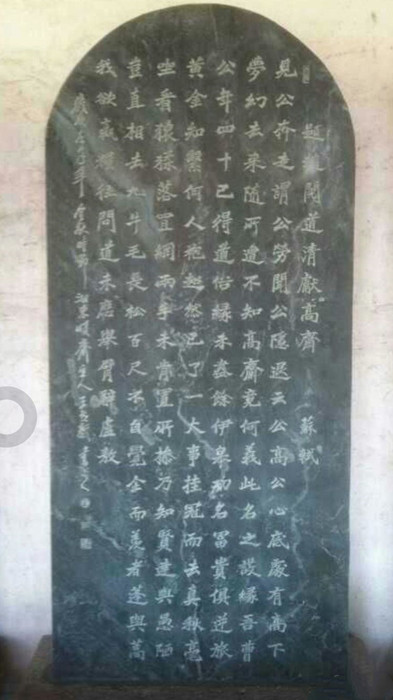 題趙閱道清獻高齋 蘇軾
見公奔走謂公勞聞公隱退云公高公心底處有高下
夢幻去來隨所遭不知高齋竟何義此名之設緣吾曹
公年四十已得道俗緣未盡餘伊皋功名富貴俱逆旅
黃金知繫何人袍超然已了一大事挂冠而去真秋毫
坐看猿猱落罝網兩手未肯置所操乃知賢達與愚陋
豈直相去九牛毛長松百尺不自覺企而羨者蓬與蒿
我欲贏糧往問道未應舉臂辭盧敖